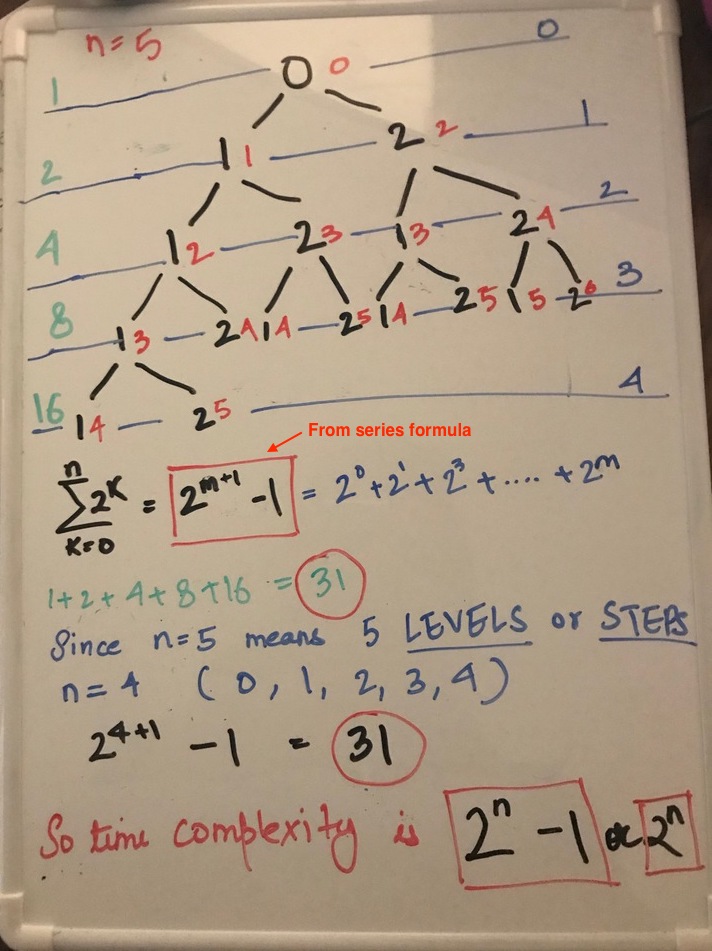 n = 5
0
1 0 0
1
2 1 1 2 2
2
4 1 2 2 3 1 3 2 4
3
8 1 3 2 4 1 4 2 5 1 4 2 5 1 5 2 6
16 1 4 2 5 4
From series formula
n
∑ 2^k = 2^(m+1) - 1 = 2^0 + 2^1 + 2^3 + .... + 2^m
k=0
1+2+4+8+16 = 31
Since n=5 means 5 LEVELS or STEPS
n = 4 ( 0, 1, 2, 3, 4 )
2^(4+1) - 1 = 31
So time complexity is 2^n - 1 ∝ 2^n